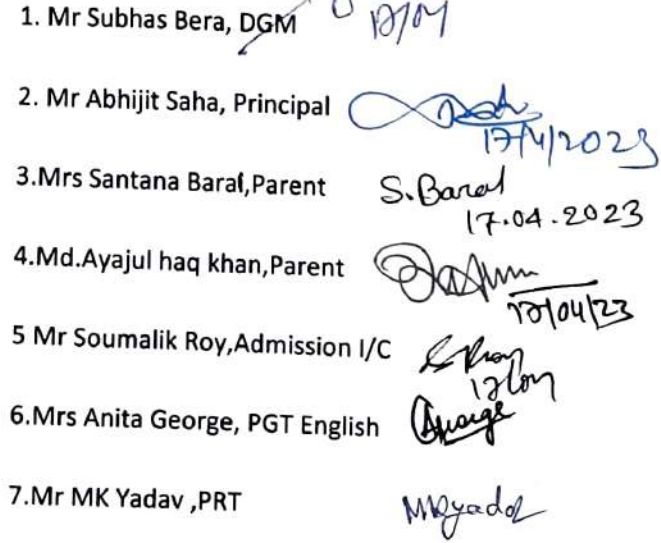 1. Mr Subhas Bera, DGM 17/04
2. Mr Abhijit Saha, Principal
17/4/2023
3.Mrs Santana Baral,Parent S.Baral
17.04.2023
4.Md.Ayajul haq khan,Parent
17/04/23
5 Mr Soumalik Roy,Admission I/C
17/04
6.Mrs Anita George, PGT English
7.Mr MK Yadav ,PRT MKyadav